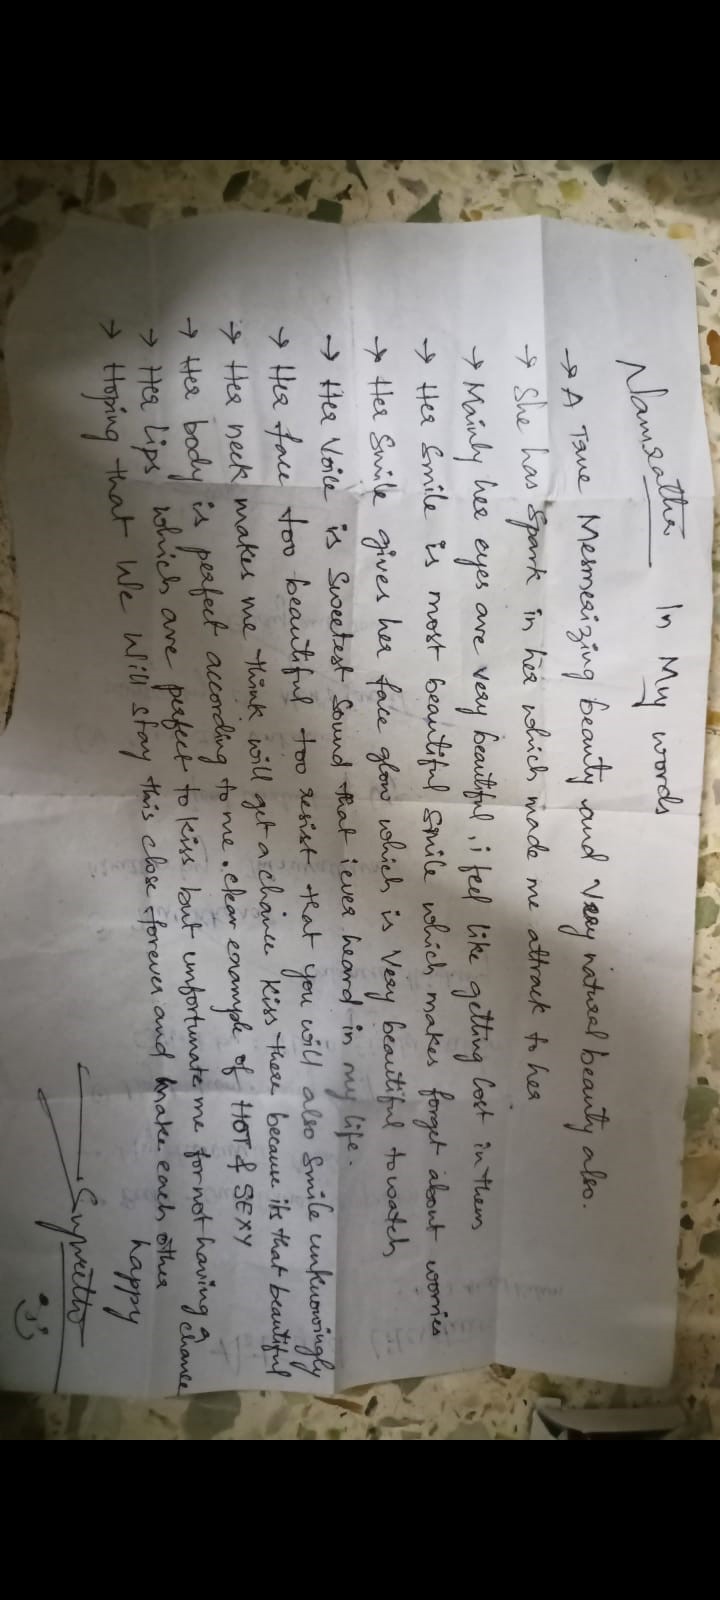 Namratha In My words
→ A True Mesmerizing beauty and Very natural beauty also.
→ She has Spark in her which made me attrack to her
→ Mainly her eyes are very beautiful, i feel like getting lost in them
→ Her Smile is most beautiful smile which makes forget about worries
→ Her Smile gives her face glow which is Very beautiful to watch
→ Her Voice is Sweetest Sound that i ever heard in my life.
→ Her face too beautiful too resist that you will also smile unknowingly
→ Her neck makes me think will get a chance kiss there because its that beautiful
→ Her body is perfect according to me. clear example of HOT & SEXY
→ Her Lips which are perfect to kiss but unfortunate me for not having a chance
→ Hoping that We Will stay this close forever and make each other
happy